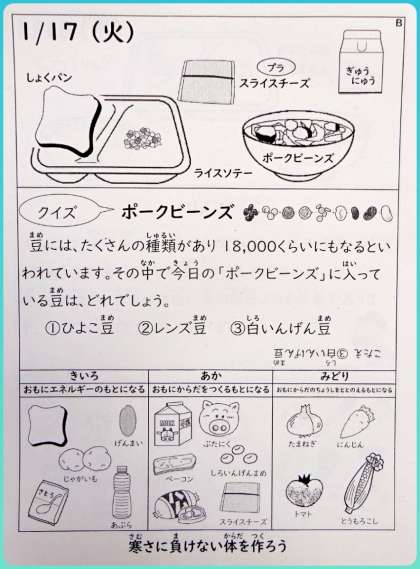 1/17（火）
B
しょくパン
プラ
スライスチーズ
ぎゅう
にゅう
ポークビーンズ
ライスソテー
クイズ
ポークビーンズ
豆には、たくさんの種類があり 18,000くらいにもなるとい
われています。その中で今日の「ポークビーンズ」に入って
いる豆は、どれでしょう。
①ひよこ豆 ②レンズ豆 ③白いんげん豆
こたえ ③白いんげん豆
きいろ
あか
みどり
おもにエネルギーのもとになる
おもにからだをつくるもとになる
おもにからだのちょうしをととのえるもとになる
げんまい
ぶたにく
たまねぎ
にんじん
じゃがいも
ベーコン
しろいんげんまめ
さとう
あぶら
スライスチーズ
トマト
とうもろこし
寒さに負けない体を作ろう